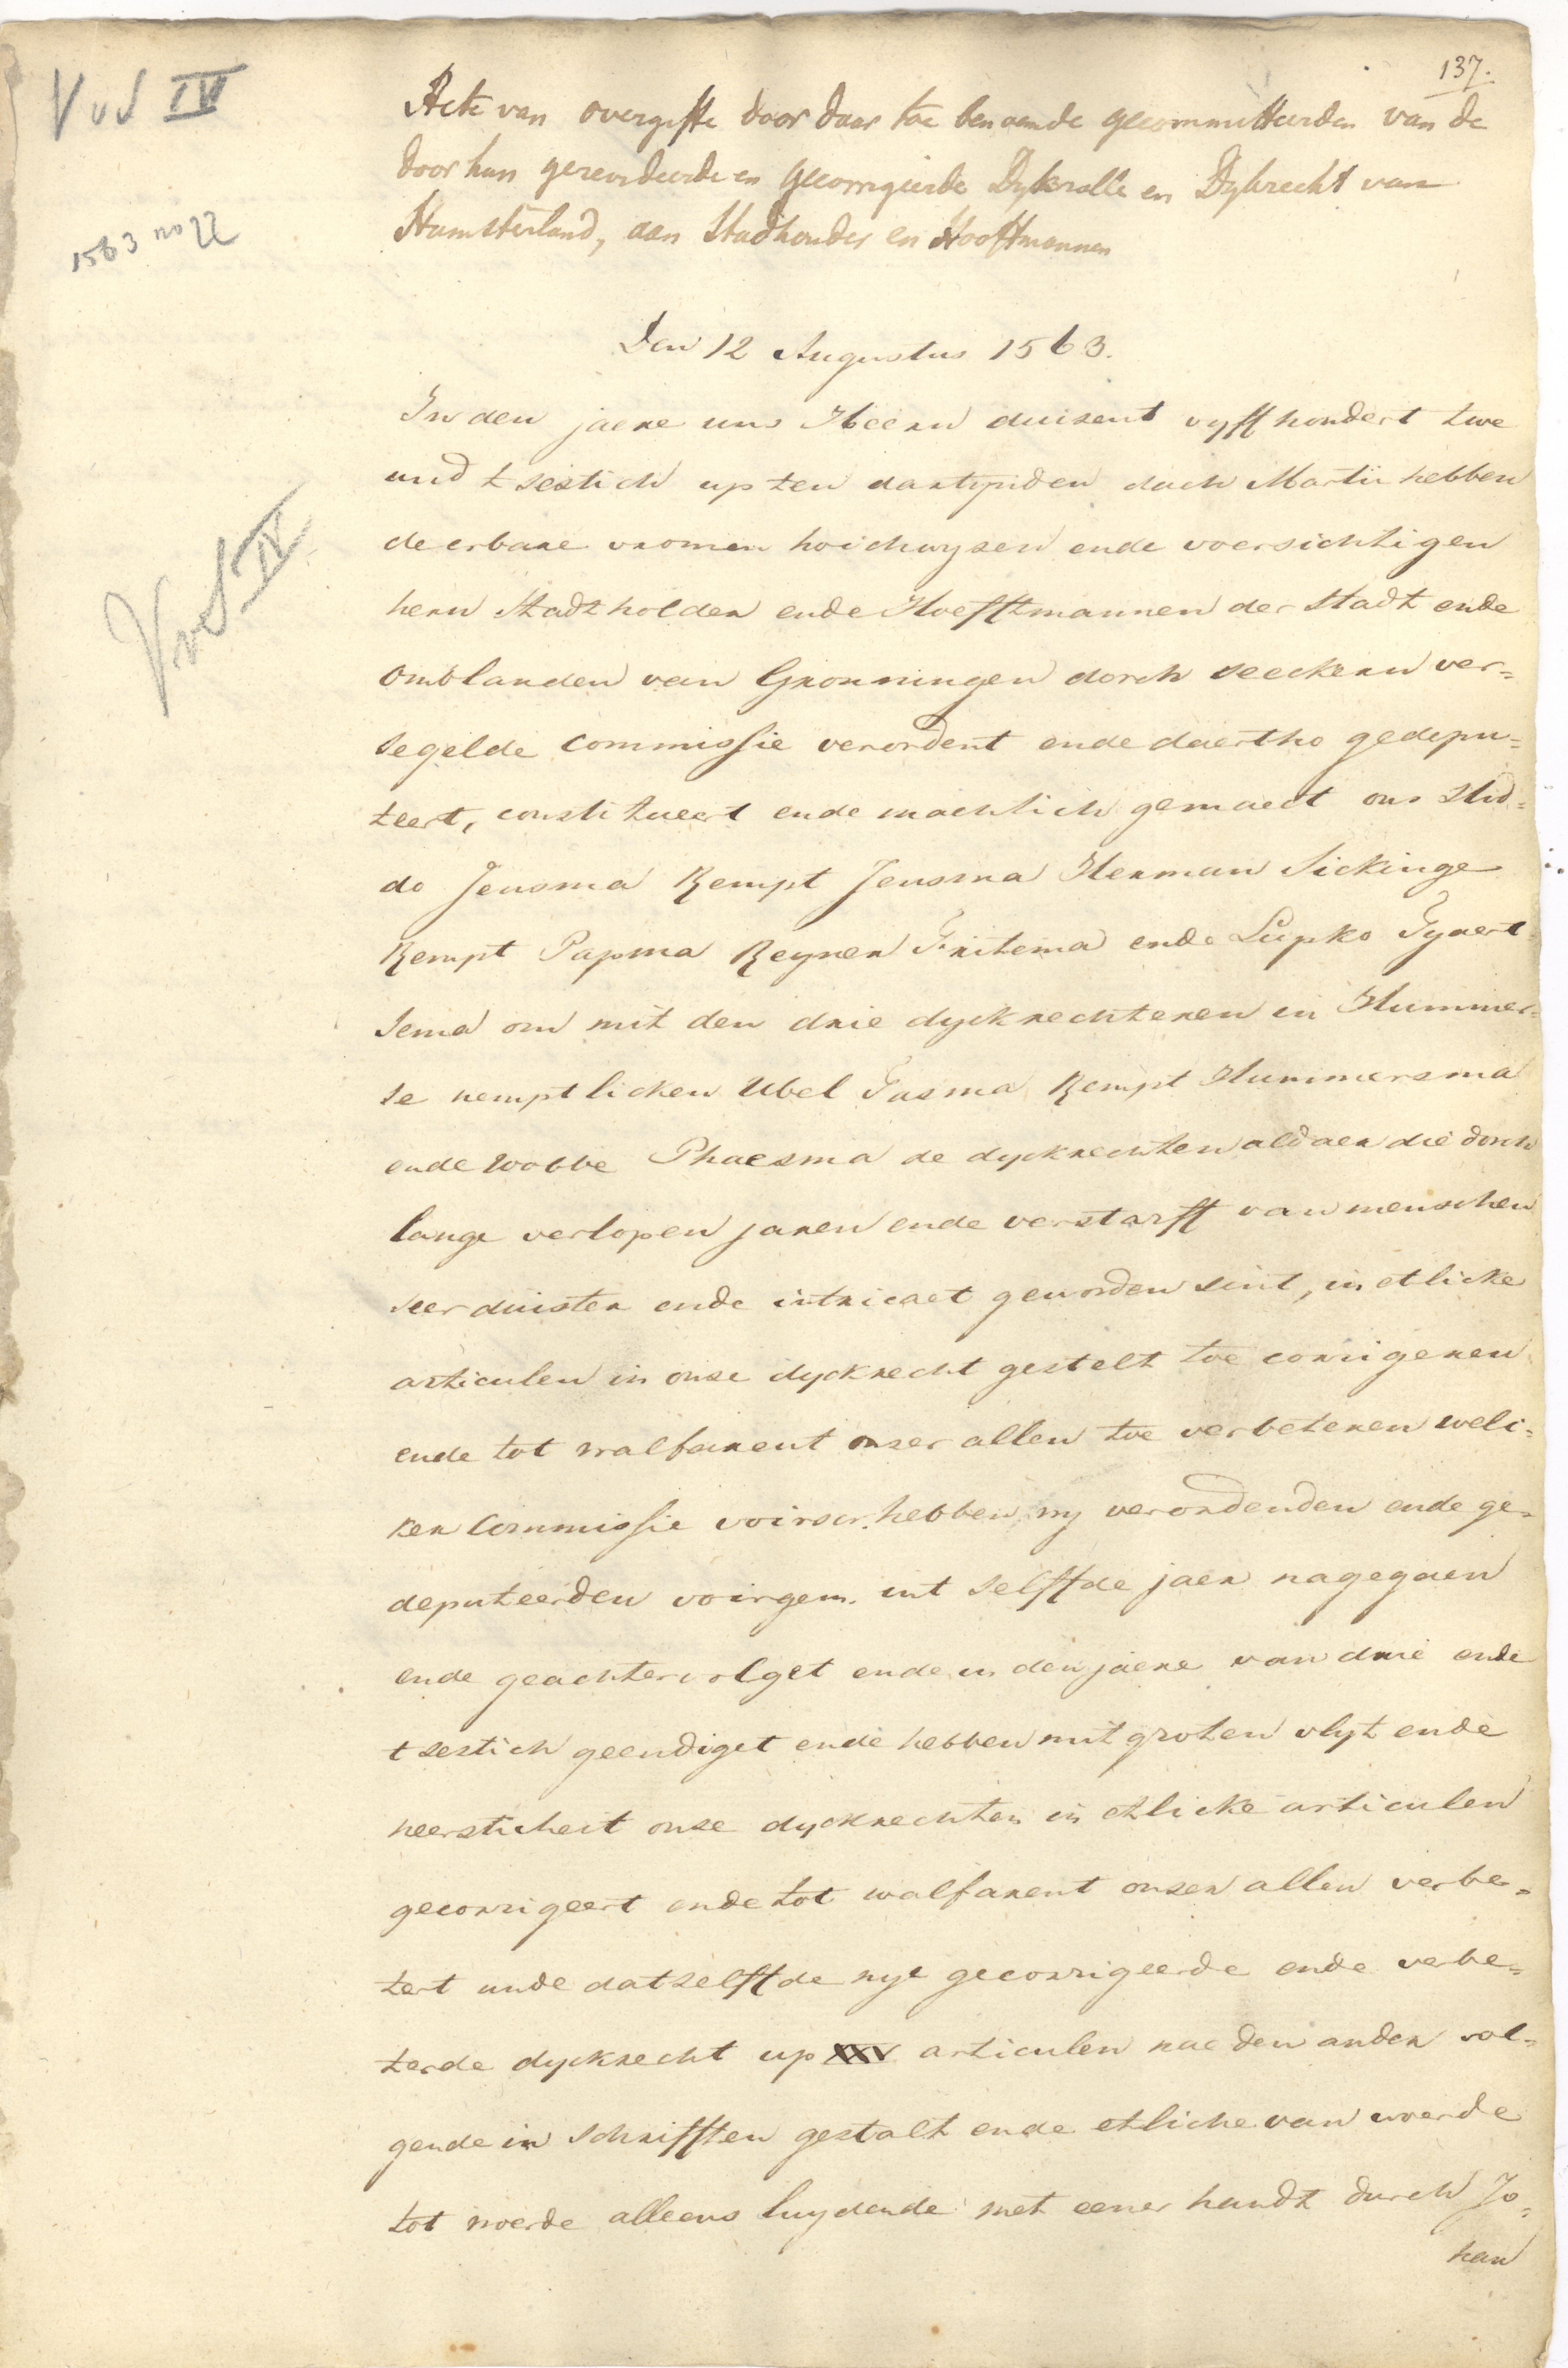 137.
VvS IV
Acte van overgifte door daar toe benoemde gecommitteerden van de
door hun gerevideerde en gecorrigeerde Dykrolle en Dykrecht van
Humsterland, aan Stadhouder en Hooftmannen
1563 no 22
Den 12 Augustus 1563.
In den jaere uns Heern duisent vyffhondert twe
und tsestich up ten dartynden dach Martii hebben
de erbare vromen hoichwysen ende voersichtigen
hern Stadtholder ende Hoefftmannen der Stadt ende
Omblanden van Gronningen dorch seeckern ver=
segelde commissie verordent ende daertho gedepu=
teert, constitueert ende machtich gemaect ons Hid=
do Jensma Rempt Jensma Herman Sickinge
Rempt Papma Reyner Fritema ende Lupko Tyaert=
sema om mit den drie dyckrechteren in Hummer=
se nemptlicken Ubel Tasma Rempt Hummersma
ende Wobbe Phaesma de dyckrechten aldaer die dorch
lange verlopen jaren ende verstarff van menschen
seer duister ende intricaet geworden sint, in etlicke
articulen in onse dyckrecht gestelt toe corrigeren
ende tot walfarent onser allen toe verbeteren welc=
ker Commissie voirscr. hebben wy verordenden ende ge=
deputeerden voirgem. int selffde jaer nagegaen
ende geachtervolget ende in den jaere van drie ende
tsestich geendiget ende hebben mit groten vlyt ende
neersticheit onse dyckrechten in etlicke articulen
gecorrigeert ende tot walfarent onser allen verbe=
tert unde datselffde nye gecorrigeerde ende verbe=
terde dyckrecht up XXV articulen nae den ander vol=
gende in schrifften gestalt ende etliche van woerde
tot woerde alleens luydende met eener handt durch Jo=
han
VvS IV